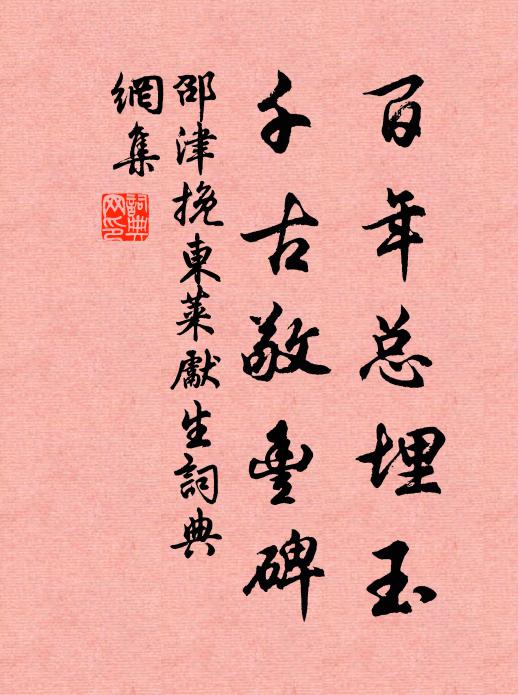 百年总埋玉
千古敬豊碑
邵津挽東萊獻生詞典
網集
詞典網印